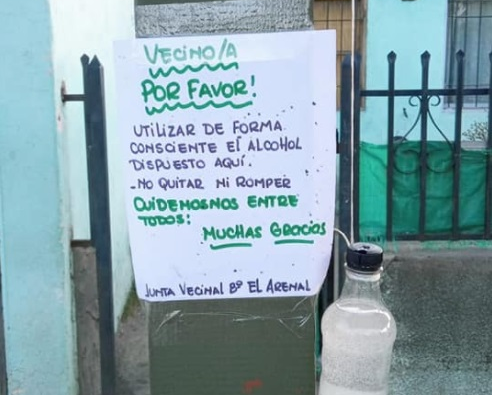 VECINO/A
POR FAVOR!
UTILIZAR DE FORMA
CONSCIENTE El ALCOHOL
DISPUESTO AQUÍ.
-NO QUITAR NI ROMPER
CUIDEMOSNOS ENTRE
TODOS:
MUCHAS GRACIAS
JUNTA VECINAL Bº EL ARENAL